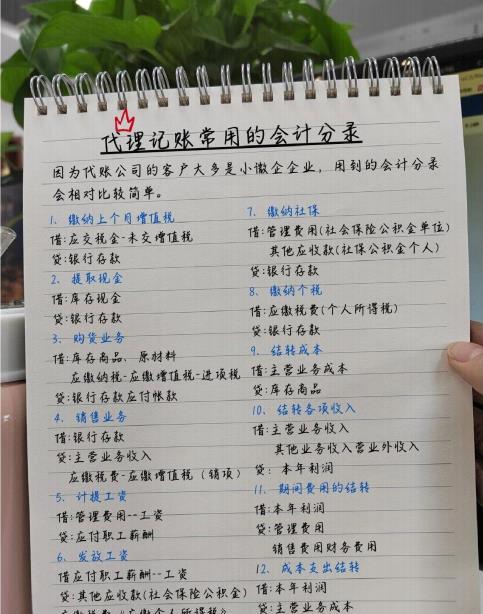 代理记账常用的会计分录
因为代账公司的客户大多是小微企企业，用到的会计分录
会相对比较简单。
1、缴纳上个月增值税
借:应交税金-未交增值税
贷:银行存款
2、提取现金
借:库存现金
贷:银行存款
3、购货业务
借:库存商品、原材料
应缴纳税-应缴增值税-进项税
贷:银行存款应付帐款
4、销售业务
借:银行存款
贷:主营业务收入
应缴税费-应缴增值税（销项）
5、计提工资
借:管理费用--工资
贷:应付职工薪酬
6、发放工资
借应付职工薪酬--工资
贷:其他应收款(社会保险公积金)
7、缴纳社保
借:管理费用(社会保险公积金单位)
其他应收款(社保公积金个人)
贷:银行存款
8、缴纳个税
借:应缴税费(个人所得税)
贷:银行存款
9、结转成本
借:主营业务成本
贷:库存商品
10、结转各项收入
借:主营业务收入
其他业务收入营业外收入
贷：本年利润
11、期间费用的结转
借:本年利润
贷:管理费用
销售费用财务费用
12、成本支出结转
借:本年利润
贷:主营业务成本